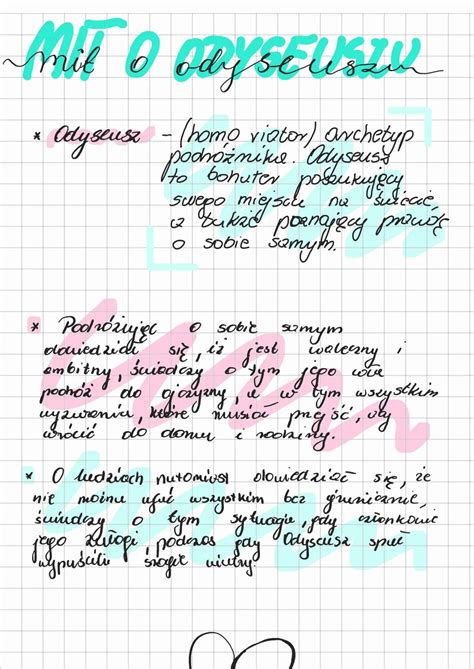 MIT O ODYSEUSZU
mit o odyseuszu
* Odyseusz – (homo viator) archetyp
podróżnika. Odyseusz
to bohater poszukujący
swego miejsca na świecie,
a także poznający prawdę
o sobie samym.
* Podróżując o sobie samym
dowiedział się, iż jest waleczny i
ambitny, świadczy o tym jego
podróż do ojczyzny, a w tym wszystkim
wyzwania, które musiał przejść, by
wrócić do domu i rodziny.
* O ludziach natomiast dowiedział się, że
nie można ufać wszystkim bez granicznie,
świadczy o tym sytuacja, gdy członkowie
jego załogi podczas gdy Odyseusz spał
wypuścili wiatry.